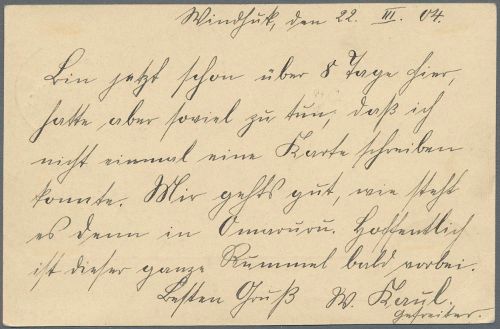 Windhuk, den 22. III. 04.
Bin jetzt schon über 8 Tage hier,
hatte aber soviel zu tun, daß ich
nicht einmal eine Karte schreiben
konnte. Mir gehts gut, wie steht
es denn in Omaruru. Hoffentlich
ist dieser ganze Rummel bald vorbei.
Besten Gruß W. Kaul.
Gefreiter.